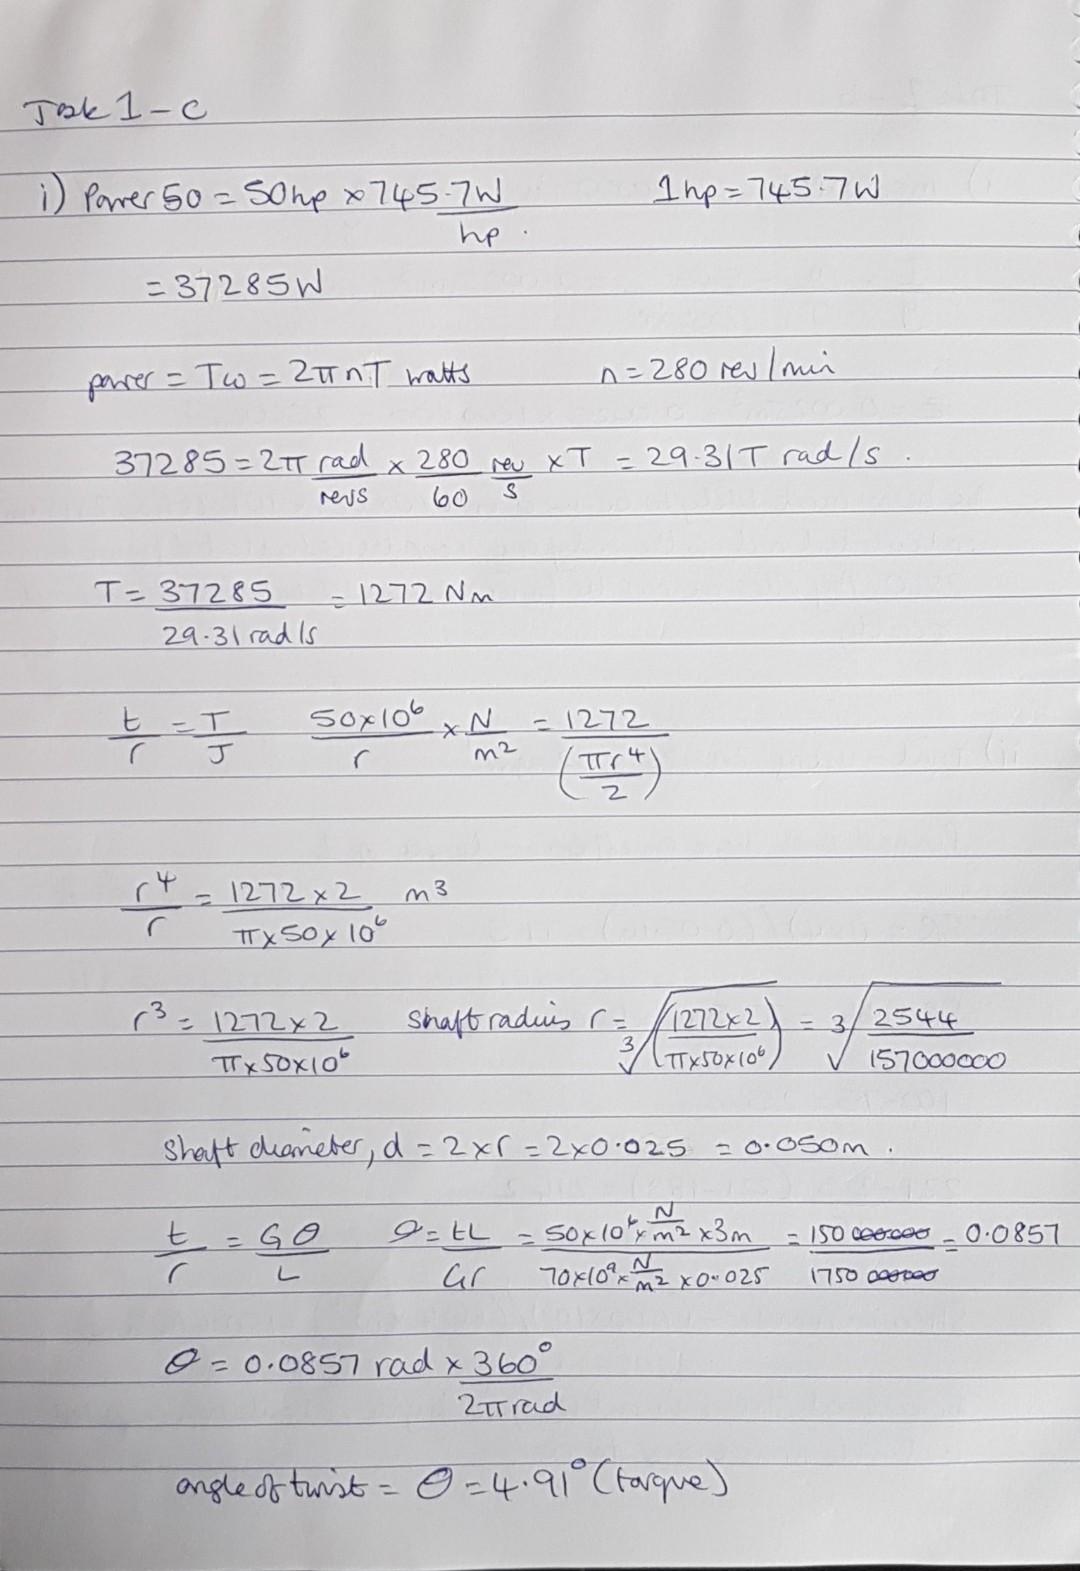 Task 1 - c
i) Power 50 = 50hp × 745.7W/hp . 1hp = 745.7W
= 37285W
power = Tω = 2πnT watts n = 280 rev/min
37285 = 2π rad/revs × 280/60 rev/s × T = 29.31T rad/s .
T = 37285/29.31 rad/s = 1272 Nm
t/r = T/J 50×10⁶/r × N/m² = 1272/(πr⁴/2)
r⁴/r = 1272 × 2/π×50×10⁶ m³
r³ = 1272×2/π×50×10⁶ shaft radius r = ∛(1272×2/π×50×10⁶) = ∛2544/157000000
Shaft diameter, d = 2×r = 2×0.025 = 0.050m .
t/r = Gθ/L θ = tL/Gr = 50×10⁶ × N/m² × 3m/70×10⁹ × N/m² × 0.025 = 150 000000/1750 000000 = 0.0857
θ = 0.0857 rad × 360°/2π rad
angle of twist = θ = 4.91° (torque)